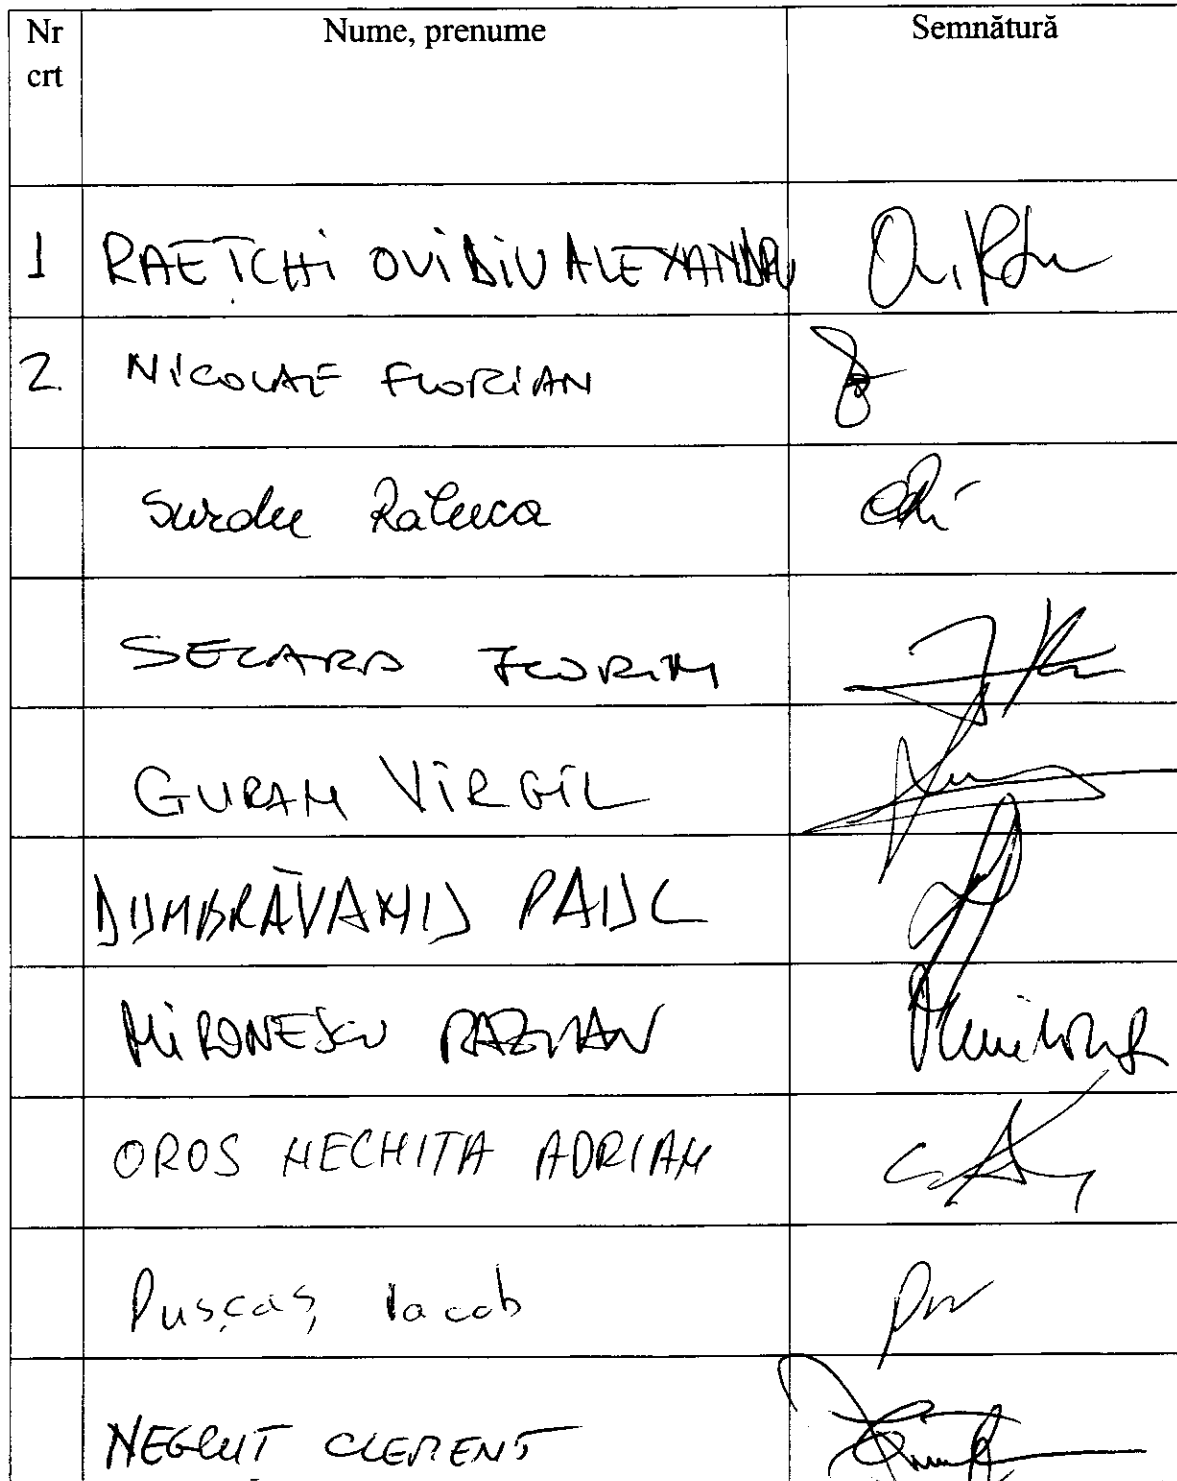 Nr crt Nume, prenume Semnătură
1 RAEȚCHI OVIDIU ALEXANDRU
2. NICOLAE FLORIAN
Surdu Raluca
SECARĂ FLORIN
GURAN VIRGIL
DUMBRĂVANU PAUL
MIRONESCU RAZVAN
OROS NECHITA ADRIAN
Pușcaș Iacob
NEGRUȚ CLEMENT